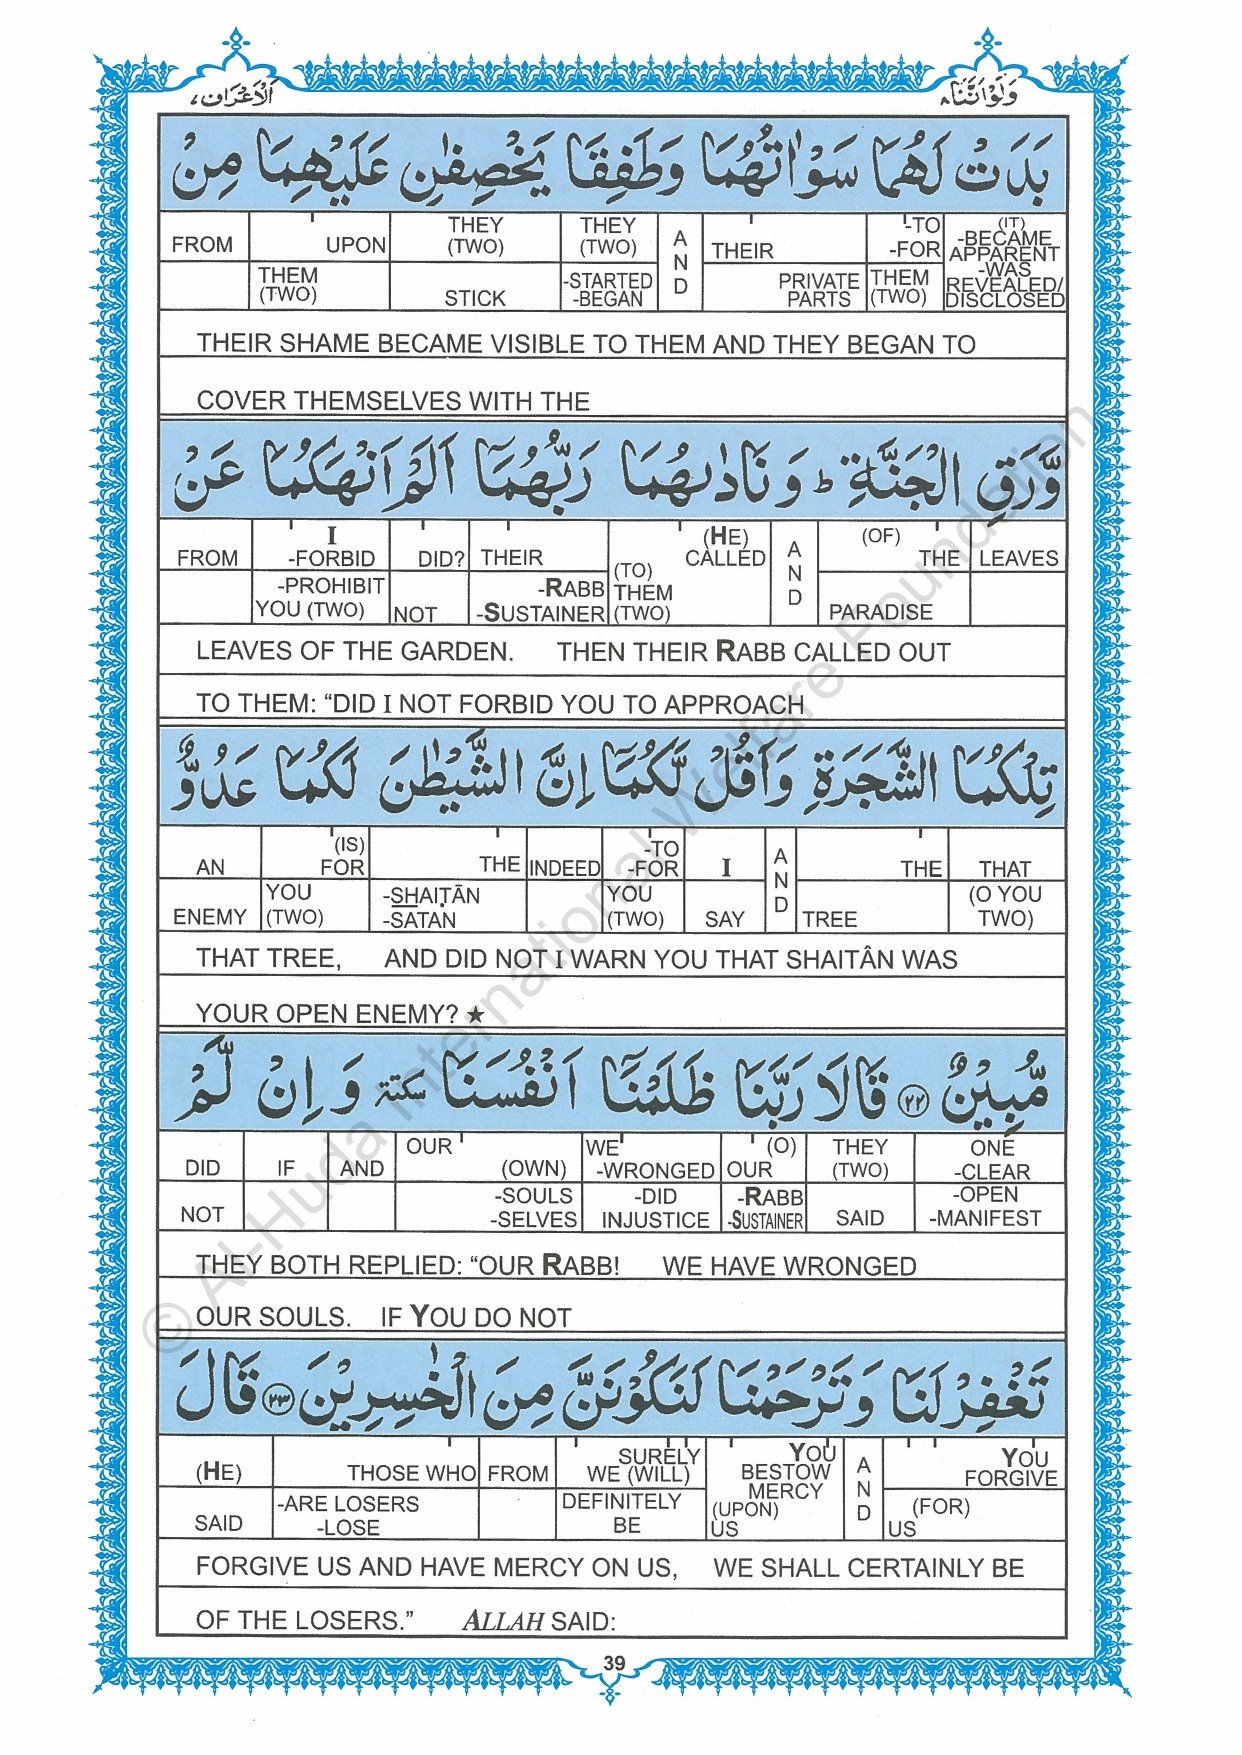 وَلَوْ اَنَّنَا ۸
اَلْاَعْرَاف ۷
بَدَتْ لَهُمَا سَوْاٰتُهُمَا وَطَفِقَا يَخْصِفٰنِ عَلَيْهِمَا مِنْ
FROM UPON THEM (TWO) THEY (TWO) STICK THEY (TWO) -STARTED -BEGAN AND THEIR PRIVATE PARTS -TO -FOR THEM (TWO) (IT) -BECAME APPARENT -WAS REVEALED/ DISCLOSED
THEIR SHAME BECAME VISIBLE TO THEM AND THEY BEGAN TO
COVER THEMSELVES WITH THE
وَّرَقِ الْجَنَّةِ ؕ وَنَادٰىهُمَا رَبُّهُمَاۤ اَلَمْ اَنْهَكُمَا عَنْ
FROM I -FORBID -PROHIBIT YOU (TWO) DID? NOT THEIR -RABB -SUSTAINER (HE) CALLED (TO) THEM (TWO) AND (OF) THE PARADISE LEAVES
LEAVES OF THE GARDEN. THEN THEIR RABB CALLED OUT
TO THEM: “DID I NOT FORBID YOU TO APPROACH
تِلْكُمَا الشَّجَرَةِ وَاَقُلْ لَّكُمَاۤ اِنَّ الشَّيْطٰنَ لَكُمَا عَدُوٌّ
AN ENEMY (IS) FOR YOU (TWO) THE -SHAIṬĀN -SATAN INDEED -TO -FOR YOU (TWO) I SAY AND THE TREE THAT (O YOU TWO)
THAT TREE, AND DID NOT I WARN YOU THAT SHAITÂN WAS
YOUR OPEN ENEMY? ★
مُّبِيْنٌ ۲۲ قَالَا رَبَّنَا ظَلَمْنَاۤ اَنْفُسَنَا سكتة وَاِنْ لَّمْ
DID NOT IF AND OUR (OWN) -SOULS -SELVES WE -WRONGED -DID INJUSTICE (O) OUR -RABB -SUSTAINER THEY (TWO) SAID ONE -CLEAR -OPEN -MANIFEST
THEY BOTH REPLIED: “OUR RABB! WE HAVE WRONGED
OUR SOULS. IF YOU DO NOT
تَغْفِرْ لَنَا وَتَرْحَمْنَا لَنَكُوْنَنَّ مِنَ الْخٰسِرِيْنَ ۲۳ قَالَ
(HE) SAID THOSE WHO -ARE LOSERS -LOSE FROM SURELY WE (WILL) DEFINITELY BE YOU BESTOW MERCY (UPON) US AND YOU FORGIVE (FOR) US
FORGIVE US AND HAVE MERCY ON US, WE SHALL CERTAINLY BE
OF THE LOSERS.” ALLAH SAID:
39
© Al-Huda International Welfare Foundation